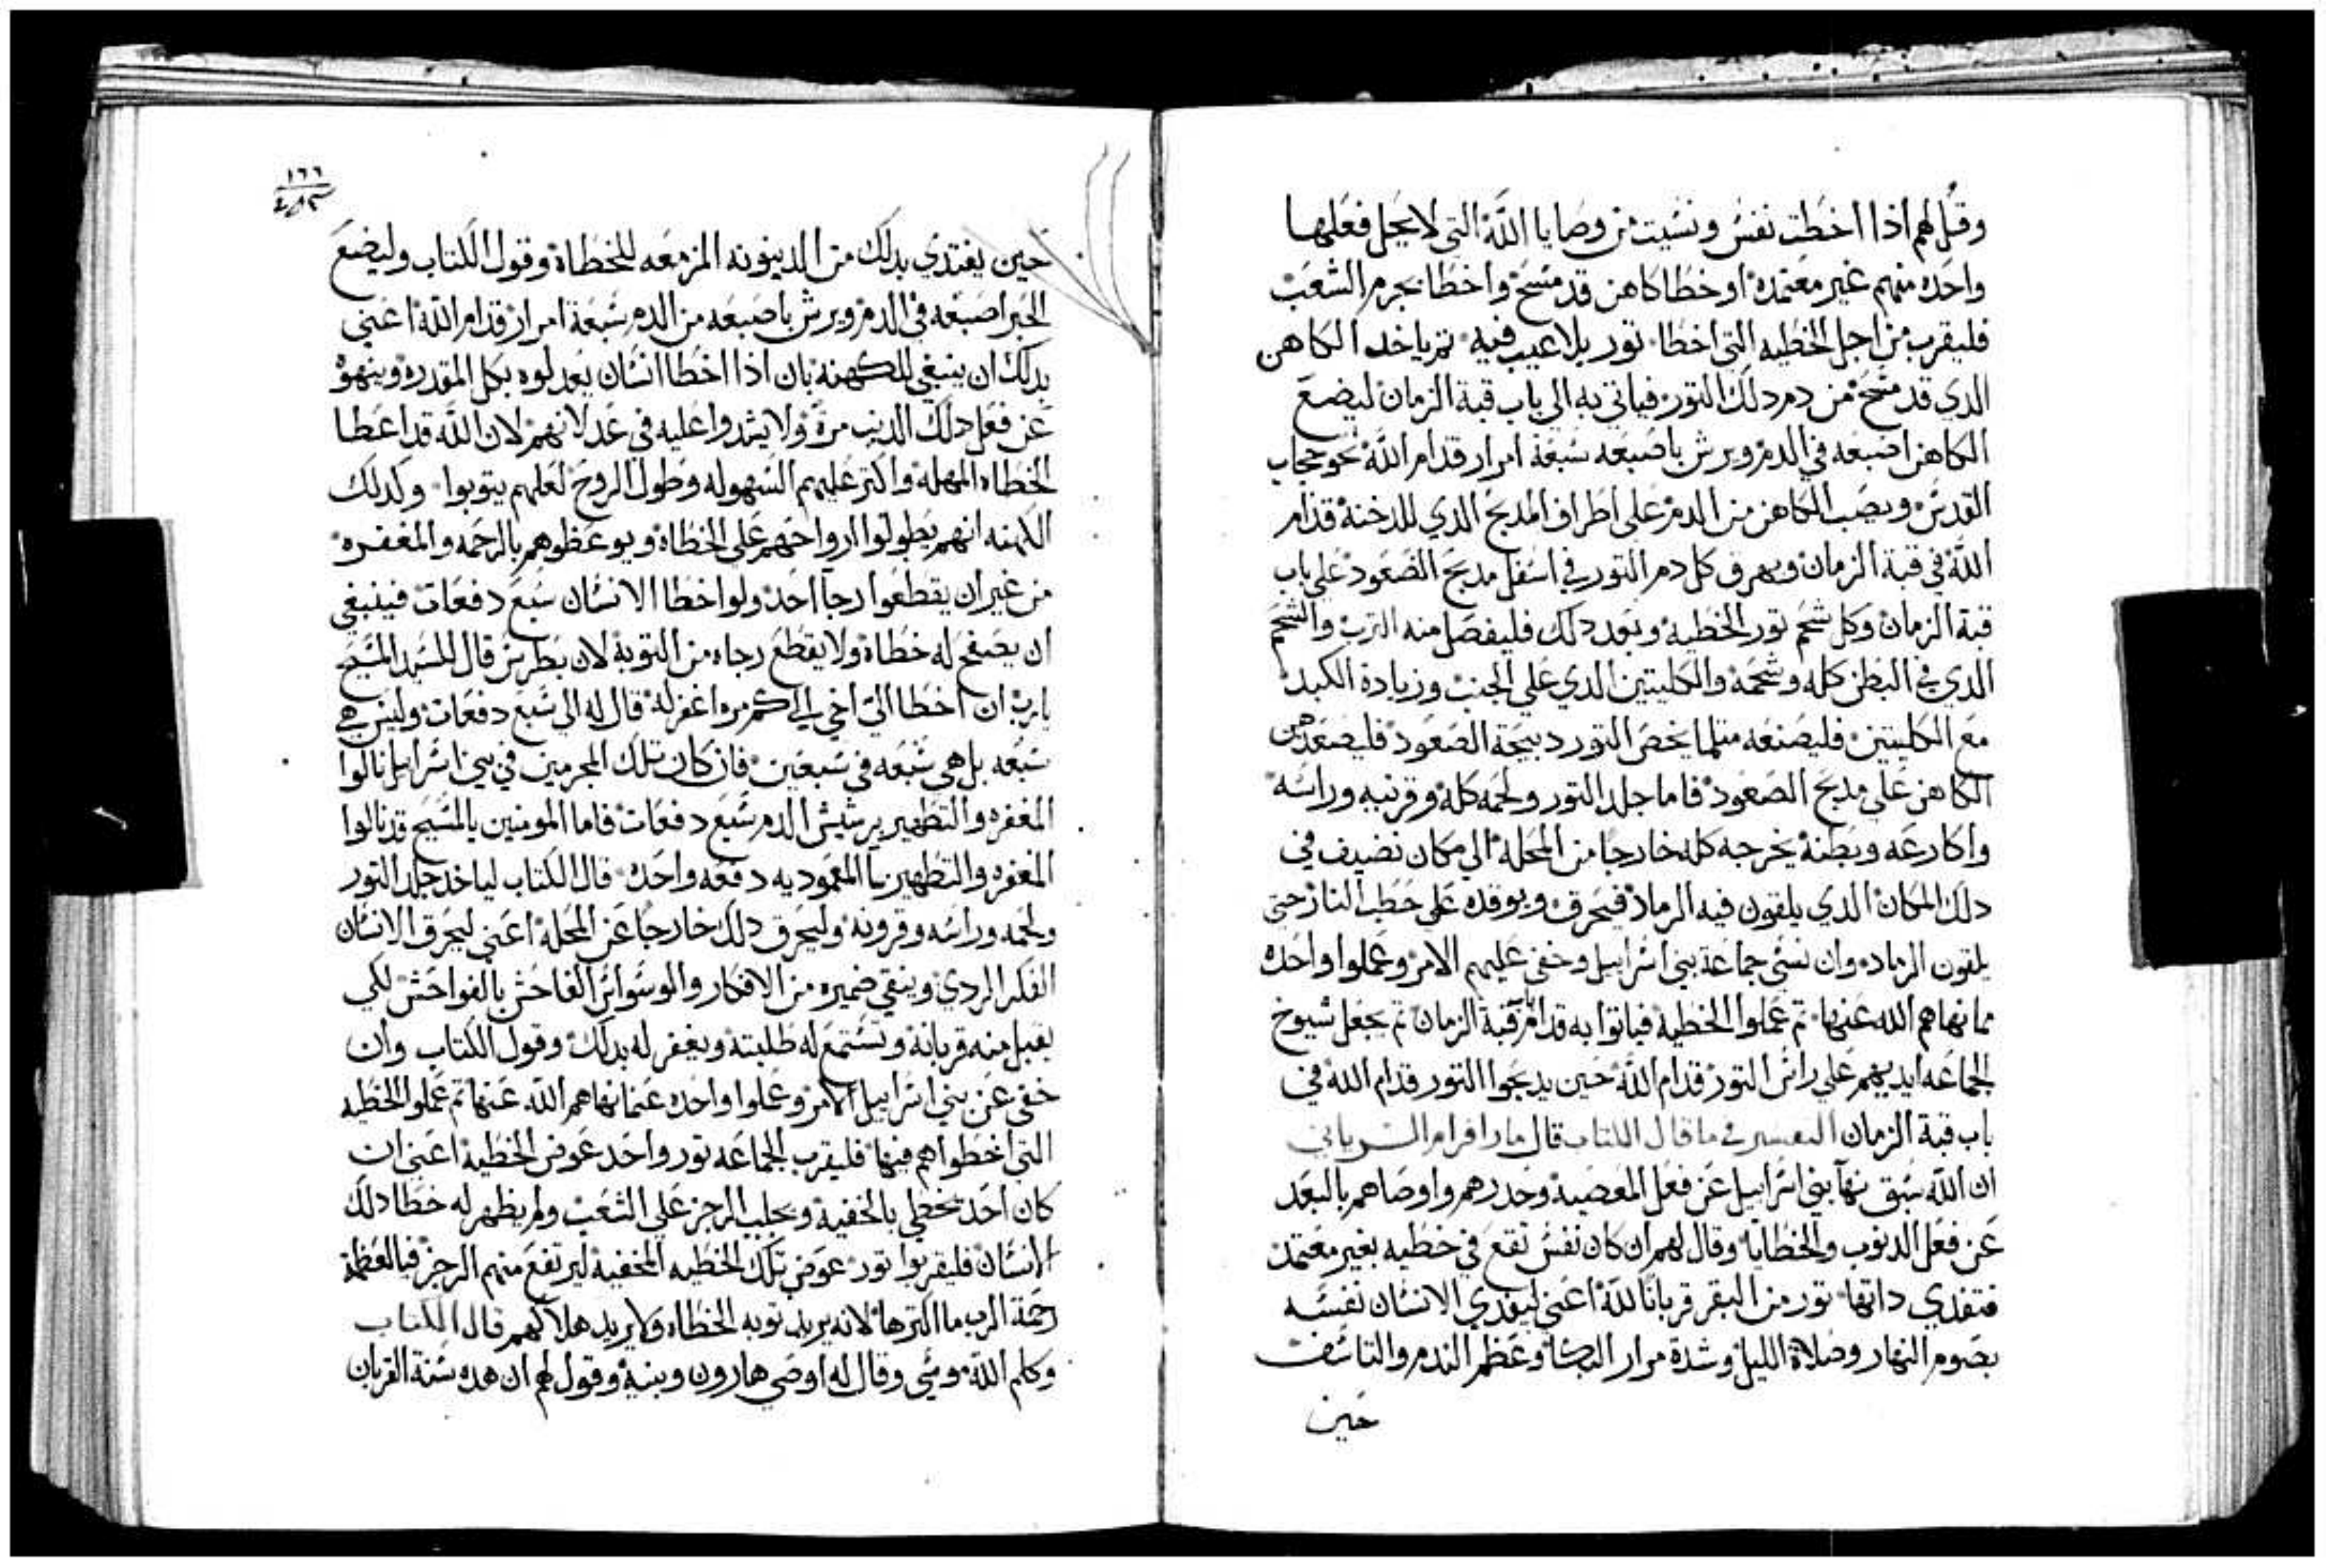 وقل لهم اذا اخطت نفس ونسيت من وصايا الله التي لا يحل فعلها
واحده منهم غير معتمده او خطا كاهن قد مسح واخطا بجرم الشعب
فليقرب من اجل الخطيه التي اخطا تور بلا عيب فيه تم ياخد الكاهن
الدي قد مسح من دم دلك التور فياتي به الي باب قبة الزمان ليضع
الكاهن اصبعه في الدم ويرش باصبعه سبعة امرار قدام الله نحو حجاب
القدس ويصب الكاهن من الدم علي اطراف المدبح الدي للدخنة قدام
الله في قبة الزمان ويهرق كل دم التور في اسفل مدبح الصعود علي باب
قبة الزمان وكل شحم تور الخطية وبعد دلك فليفصل منه الترب والشحم
الدي في البطن كله وشحمه والكليتين الدي علي الجنب وزيادة الكبد
مع الكليتين فليصنعه متلما يخص التور دبيحة الصعود فليصعدهن
الكاهن علي مدبح الصعود فاما جلد التور ولحمه كله وقرنيه وراسه
واكارعه وبطنه يخرجه كله خارجا من المحلة الي مكان نضيف في
دلك المكان الدي يلقون فيه الرماد فيحرق ويوقده علي حطب النار حتي
يلقون الرماده وان نسي جماعة بني اسراييل وخفي عليهم الامر وعملوا واحده
مما نهاهم الله عنها تم عملوا الخطية فياتوا به قدام باب قبة الزمان تم يجعل شيوخ
الجماعه ايديهم علي راس التور قدام الله حين يدبحوا التور قدام الله في
باب قبة الزمان التفسير في ما قال الكتاب قال مار افرام السرياني
ان الله سبق نهآ بني اسراييل عن فعل المعصية وحدرهم واوصاهم بالبعد
عن فعل الدنوب والخطايا وقال لهم ان كان نفس تقع في خطيه بغير معتمد
فتفدي داتها تور من البقر قربانا لله اعني ليفدي الانسان نفسه
بصوم النهار وصلاة الليل وشدة مرار البكا وعظم الندم والتاسف
حين
١٦٦
حين يفتدي بدلك من الدينونه المزمعه للخطاة وقول الكتاب وليضع
الحبر اصبعه في الدم ويرش باصبعه من الدم سبعة امرار قدام الله اعني
بدلك ان ينبغي للكهنة بان ادا اخطا انسان يعدلوه بكل المقدره وينهوه
عن فعل دلك الدنب مرة ولا يشدوا عليه في عدلانهم لان الله قد اعطا
الخطاه المهله واكتر عليهم السهوله وطول الروح لعلهم يتوبوا وكدلك
الكهنه انهم يطولوا ارواحهم علي الخطاة ويوعظوهم بالرحمه والمغفره
من غير ان يقطعوا رجا احد ولو اخطا الانسان سبع دفعات فينبغي
ان يصفح له خطاه ولا يقطع رجاه من التوبة لان بطرس قال للسيد المسيح
يارب ان اخطا الي اخي الي كم مره اغفر له قال له الي سبع دفعات وليس هي
سبعه بل هي سبعه في سبعين فان كان تلك المجرمين في بني اسراييل نالوا
المغفره والتطهير برشيش الدم سبع دفعات فاما المومنين بالمسيح قد نالوا
المغفره والتطهير بما المعموديه دفعه واحده قال الكتاب لياخد جلد التور
ولحمه وراسه وقرونه وليحرق دلك خارجا عن المحلة اعني ليحرق الانسان
الفكر الردي وينقي ضميره من الافكار والوسواس الفاحش بالفواحش لكي
يقبل منه قربانه وتستمع له طلبته ويغفر له بدلك وقول الكتاب وان
خفي عن بني اسراييل الامر وعملوا واحده عما نهاهم الله عنها تم عملوا الخطيه
التي اخطوا هم فيها فليقرب الجماعه تور واحد عوض الخطية اعني ان
كان احد يخطي بالخفية ويجلب الرجز علي الشعب ولم يظهر له خطا دلك
الانسان فليقربوا تور عوض تلك الخطيه المخفية ليرتفع منهم الرجز فيالعظمة
رحمة الرب ما اكترها لانه يريد توبه الخطاه ولا يريد هلاكهم قال الكتاب
وكلم الله موسي وقال له اوصي هارون وبنيه وقول لهم ان هده سنة القربان